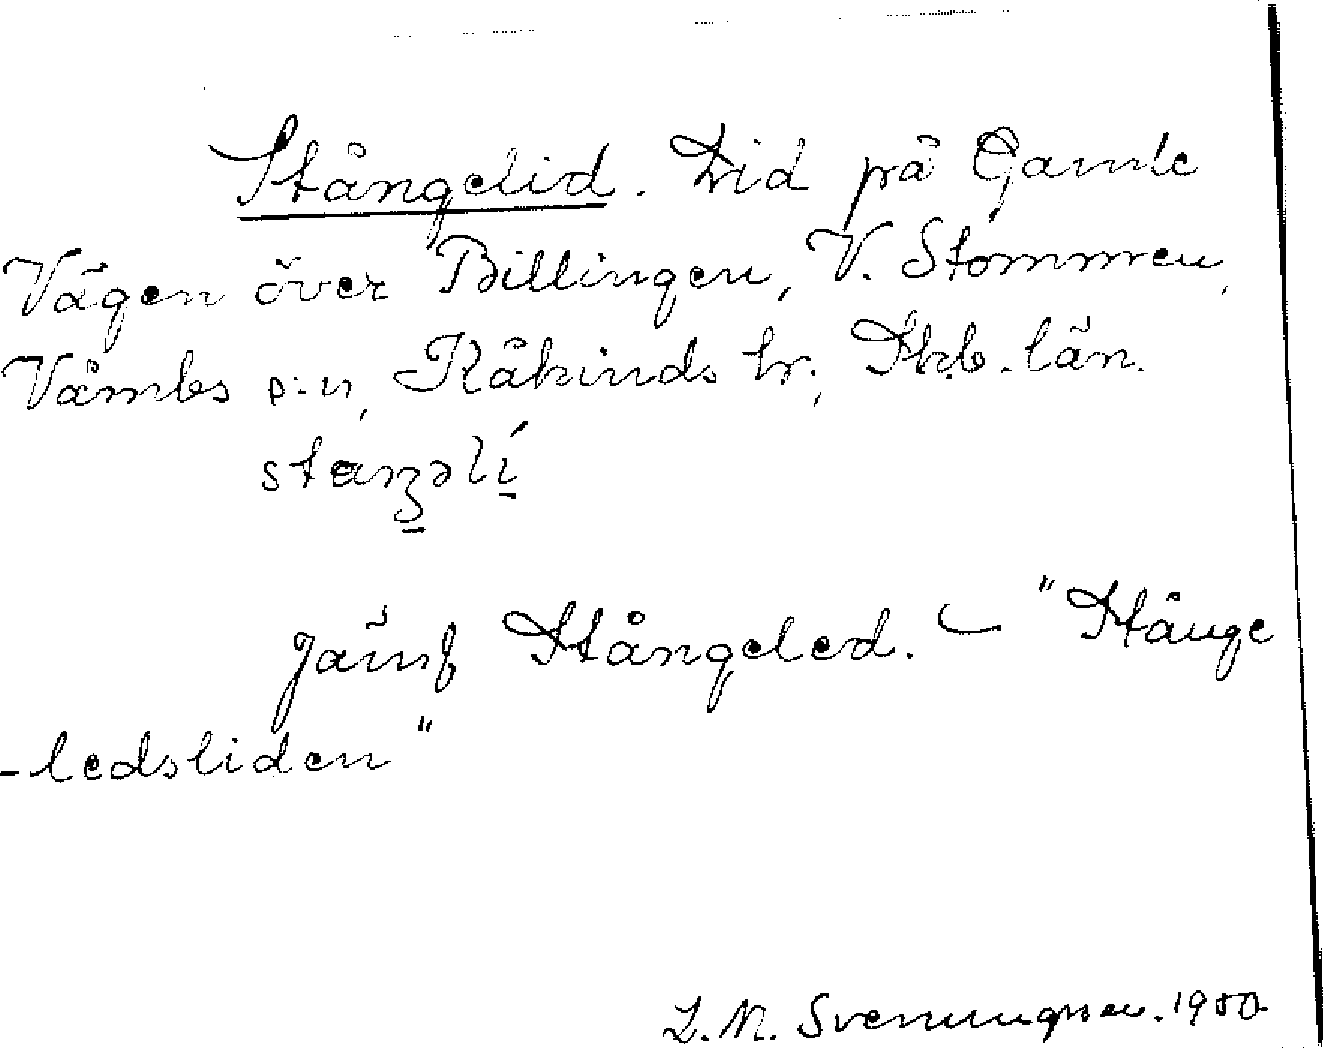 Stångelid. Lid på Gamle
Vägen över Billingen, V. Stommen,
Våmbs s:n, Kåkinds hr, Skb. län.
jämf Stångeled. — "Stånge
-ledsliden"
L. M. Svenungsson. 1950